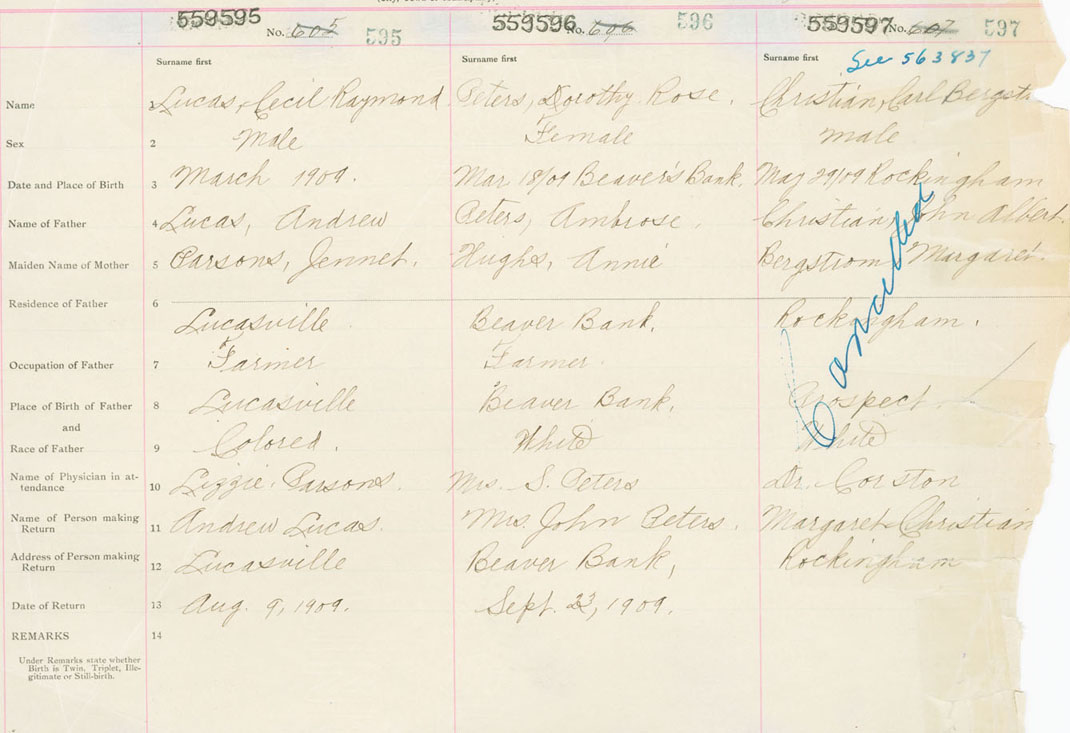 559595 No. 605 595 559596 No. 606 596 559597 No. 607 597
Surname first Surname first Surname first See 563837
Name 1 Lucas, Cecil Raymond Peters, Dorothy Rose. Christian, Carl
Sex 2 Male Female Male
Date and Place of Birth 3 March 1909. Mar 18/09 Beaver's Bank. May 29/09 Rockingham
Name of Father 4 Lucas, Andrew Peters, Ambrose. Christian, John Albert
Maiden Name of Mother 5 Parsons, Jennet. Hughs, Annie Bergstrom, Margaret.
Residence of Father 6 Lucasville Beaver Bank. Rockingham.
Cancelled
Occupation of Father 7 Farmer Farmer
Place of Birth of Father 8 Lucasville Beaver Bank. Prospect.
and
Race of Father 9 Colored. White White
Name of Physician in at-
tendance 10 Lizzie Parsons. Mrs. S. Peters Dr. Corston
Name of Person making
Return 11 Andrew Lucas. Mrs. John Peters. Margaret Christian
Address of Person making
Return 12 Lucasville Beaver Bank, Rockingham
Date of Return 13 Aug. 9, 1909. Sept. 23, 1909.
REMARKS 14
Under Remarks state whether
Birth is Twin, Triplet, Ille-
gitimate or Still-birth.